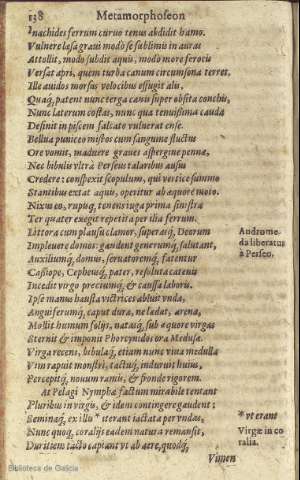 138 Metamorphoseon
Inachides ferrum curuo tenus abdidit hamo.
Vulnere læsa graui modò se sublimis in auras
Attollit, modò subdit aquis, modò more ferocis
Versat apri, quem turba canum circumsona terret.
Ille auidos morsus velocibus effugit alis,
Quaq́, patent nunc terga cauis super obsita conchis,
Nunc laterum costas, nunc qua tenuissima cauda
Desinit in piscem falcato vulnerat ense.
Bellua puniceo mistos cum sanguine fluctus
Ore vomit, maduere graues aspergine penna,
Nec bibulis vltrà Perseus talaribus ausus
Credere: conspexit scopulum, qui vertice summo
Stantibus extat aquis, operitur ab æquore moto.
Nixus eo, rupisq́, tenens iuga prima sinistra
Ter quater exegit repetita per ilia ferrum.
Littora cum plausu clamor, superasq́, Deorum
Impleuere domos: gaudent generumq́, salutant,
Auxiliumq́, domus, seruatoremq́, fatentur
Cassiope, Cepheusq́, pater, resoluta catenis
Incedit virgo preciumq́, & caussa laboru.
Ipse manus hausta victrices abluit vnda,
Anguiferumq́, caput dura, ne lædat, arena,
Mollit humum folijs, nataśq́, sub æquore virgas
Sternit & imponit Phorcynidos ora Medusæ.
Virga recens, bibulaq́, etiam nunc viua medulla
Vim rapuit monstri, tactuq́, induruit huius,
Percepitq́, nouum ramis, & fronde rigorem.
At Pelagi Nymphæ factum mirabile tentant
Pluribus in virgis, & idem contingere gaudent;
Seminaq́, ex illo * iterant iactata per vndas,
Nunc quoq́, coralijs eadem natura remansit,
Duritiem tacto capiant vt ab aere, quodq́,
Vimen
Androme-
da liberatur
à Perseo.
* vt erant
Virgæ in co
ralia.
Biblioteca de Galicia